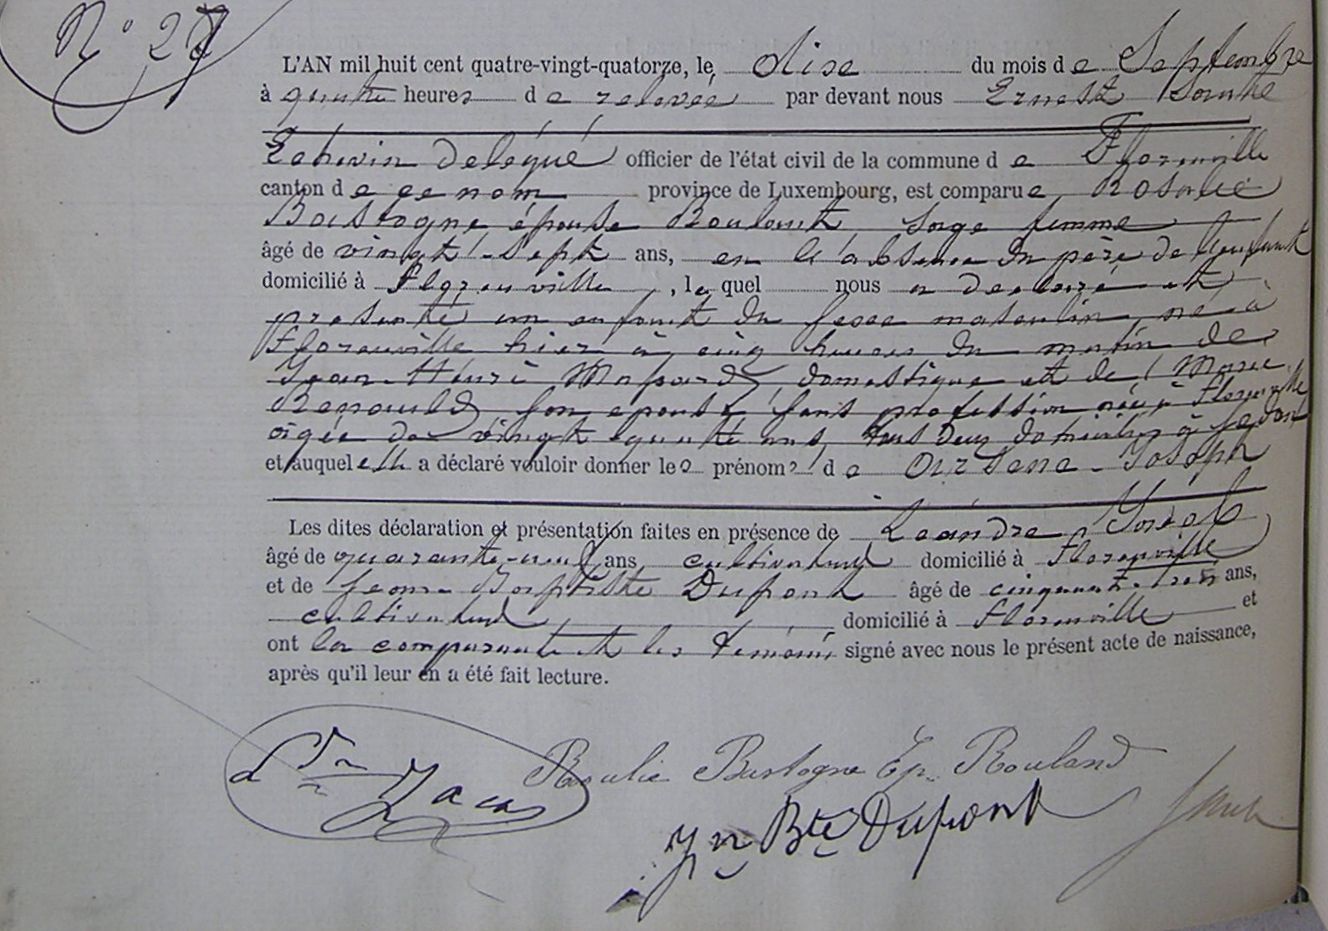 N° 27
L'AN mil huit cent quatre-vingt-quatorze, le dise du mois de Septembre
à quatre heures de relevée par devant nous Ernest
Echevin délégué officier de l'état civil de la commune de Florenville
canton de ce nom province de Luxembourg, est comparue Rosalie
Bastogne épouse Roulant, sage femme
âgé de vingt-sept ans, en l'absence du père de l'enfant
domicilié à Florenville, laquel nous a déclaré et
présenté un enfant du sexe masculin, né à
Florenville hier à cinq heures du matin de
Jean Henri domestique et de Marie
son épouse sans profession née à Florenville
âgée de vingt quatre ans, tous deux domiciliés à Sedan
et auquel elle a déclaré vouloir donner les prénoms de Arsène-Joseph
Les dites déclaration et présentation faites en présence de Léandre
âgé de quarante-neuf ans cultivateur domicilié à Florenville
et de Jean Baptiste Dupont âgé de cinquante-trois ans,
cultivateur domicilié à Florenville et
ont la comparante et les témoins signé avec nous le présent acte de naissance,
après qu'il leur en a été fait lecture.
Rosalie Bastogne Ep. Rouland
Jn Bte Dupont